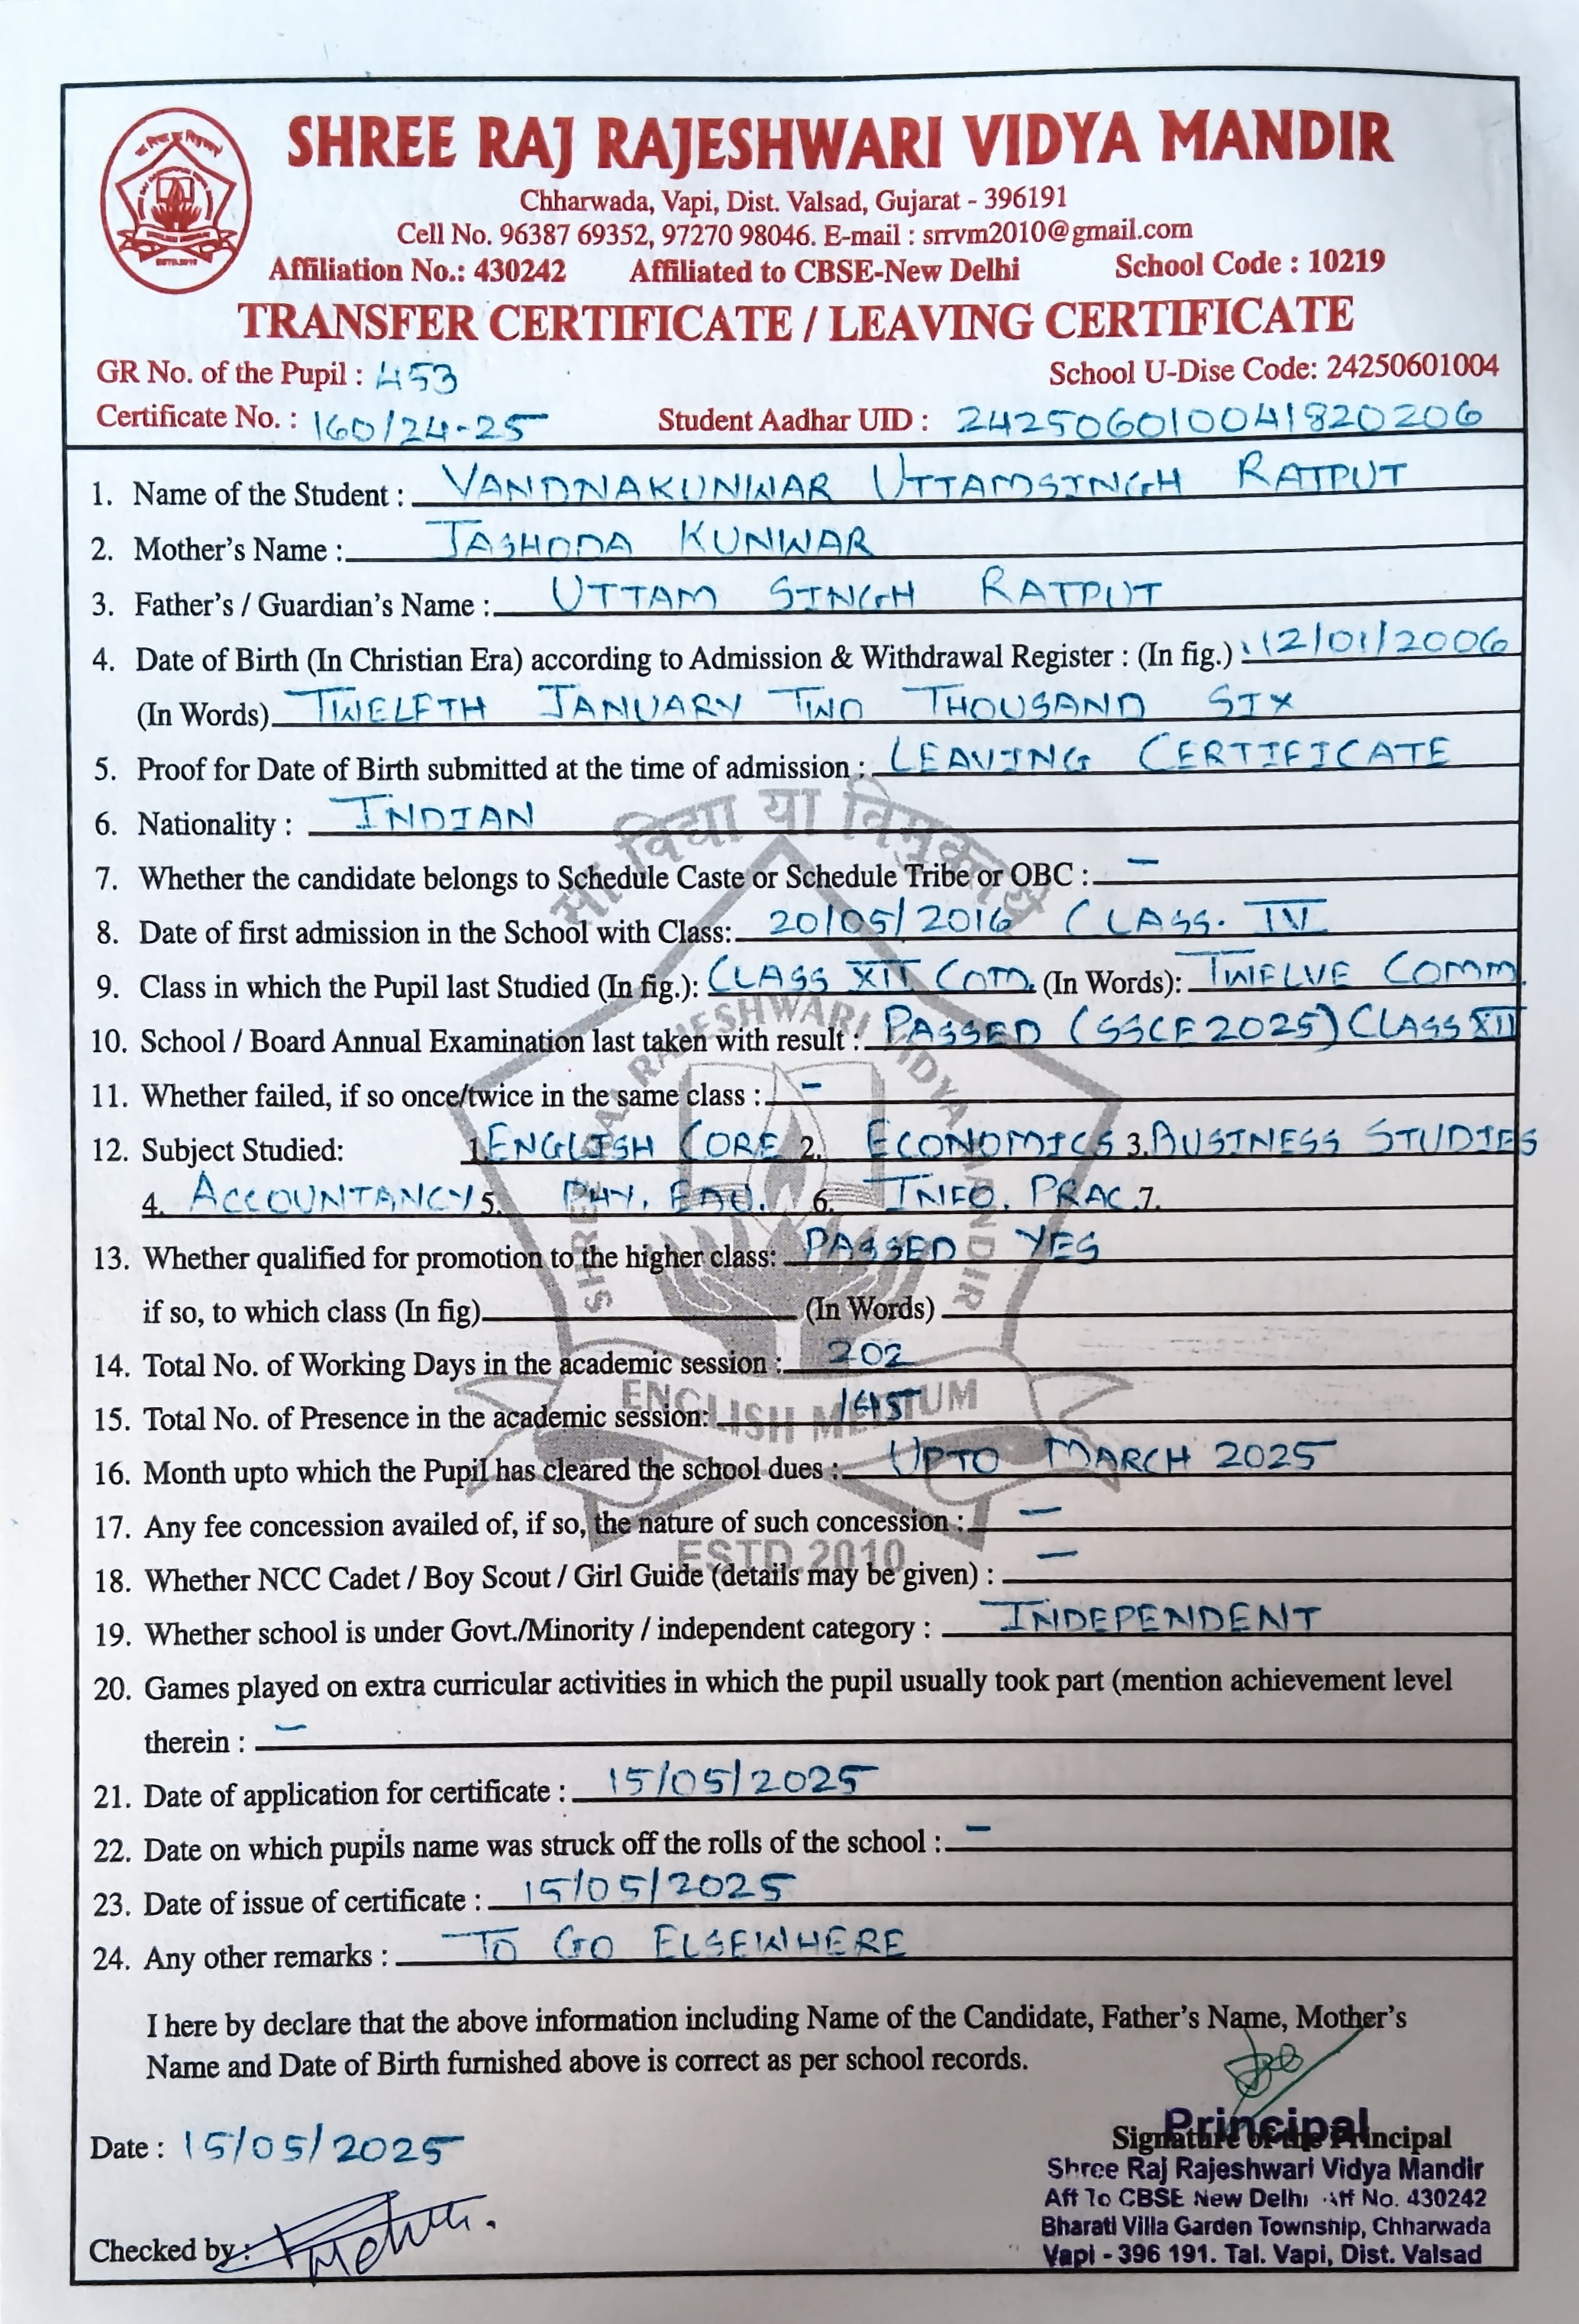 SHREE RAJ RAJESHWARI VIDYA MANDIR
Chharwada, Vapi, Dist. Valsad, Gujarat - 396191
Cell No. 96387 69352, 97270 98046. E-mail : srrvm2010@gmail.com
Affiliation No.: 430242 Affiliated to CBSE-New Delhi School Code : 10219
TRANSFER CERTIFICATE / LEAVING CERTIFICATE
GR No. of the Pupil : 453 School U-Dise Code: 24250601004
Certificate No. : 160/24-25 Student Aadhar UID : 242506010041820206
1. Name of the Student : VANDNAKUNWAR UTTAMSINGH RAJPUT
2. Mother's Name : JASHODA KUNWAR
3. Father's / Guardian's Name : UTTAM SINGH RAJPUT
4. Date of Birth (In Christian Era) according to Admission & Withdrawal Register : (In fig.) 12/01/2006
(In Words) TWELFTH JANUARY TWO THOUSAND SIX
5. Proof for Date of Birth submitted at the time of admission : LEAVING CERTIFICATE
6. Nationality : INDIAN
7. Whether the candidate belongs to Schedule Caste or Schedule Tribe or OBC : -
8. Date of first admission in the School with Class: 20/05/2016 CLASS. IV
9. Class in which the Pupil last Studied (In fig.): CLASS XII COM. (In Words): TWELVE COMM.
10. School / Board Annual Examination last taken with result : PASSED (SSCE 2025) CLASS XII
11. Whether failed, if so once/twice in the same class : -
12. Subject Studied: 1. ENGLISH CORE 2. ECONOMICS 3. BUSINESS STUDIES
4. ACCOUNTANCY 5. PHY. EDU. 6. INFO. PRAC. 7.
13. Whether qualified for promotion to the higher class: PASSED YES
if so, to which class (In fig) (In Words)
14. Total No. of Working Days in the academic session : 202
15. Total No. of Presence in the academic session:
16. Month upto which the Pupil has cleared the school dues : UPTO MARCH 2025
17. Any fee concession availed of, if so, the nature of such concession : -
18. Whether NCC Cadet / Boy Scout / Girl Guide (details may be given) : -
19. Whether school is under Govt./Minority / independent category : INDEPENDENT
20. Games played on extra curricular activities in which the pupil usually took part (mention achievement level
therein : -
21. Date of application for certificate : 15/05/2025
22. Date on which pupils name was struck off the rolls of the school : -
23. Date of issue of certificate : 15/05/2025
24. Any other remarks : TO GO ELSEWHERE
I here by declare that the above information including Name of the Candidate, Father's Name, Mother's
Name and Date of Birth furnished above is correct as per school records.
Date : 15/05/2025
Principal
Signature of the Principal
Shree Raj Rajeshwari Vidya Mandir
Aff To CBSE New Delhi Aff No. 430242
Bharati Villa Garden Township, Chharwada
Vapi - 396 191. Tal. Vapi, Dist. Valsad
Checked by :
सा विद्या या विमुक्तये
SHREE RAJ RAJESHWARI VIDYA MANDIR
ENGLISH MEDIUM
ESTD.2010